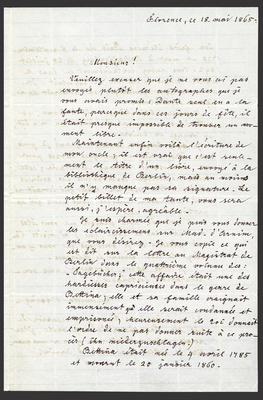 Florence, ce 18. mai 1865.
Monsieur!
Veuillez excuser que je ne vous ai pas
envoyé plutôt les autographes que je
vous avais promis; Dante seul en a la
faute, parceque dans ces jours de fête, il
était presque impossible de trouver un mo-
ment libre.
Maintenant enfin voilà l'écriture de
mon oncle; il est vrai que c'est seule-
ment le titre d'un livre, envoyé à la
bibliothèque de Berlin, mais au moins
il n'y manque pas sa signature. Le
petit billet de ma tante, vous sera
aussi, j'espère, agréable.
Je suis charmée que je puis vous donner
les éclaircissemens sur Mad. d'Arnim
que vous désirez. Je vous copie ce qui
est dit sur la lettre au Magistrat de
Berlin dans le quatrième volume des
Tagebücher; cette affaire était une des
hardiesses capricieuses dans le genre de
Bettina; elle et sa famille craignait
immensement qu'elle serait condamnée et
emprisonée; heureusement le roi donnait
l'ordre de ne pas donner suite à ce pro-
cès; (ihn niederzuschlagen.)
Bettina était née le 4 avril 1785
et mourut le 20 janvier 1860.